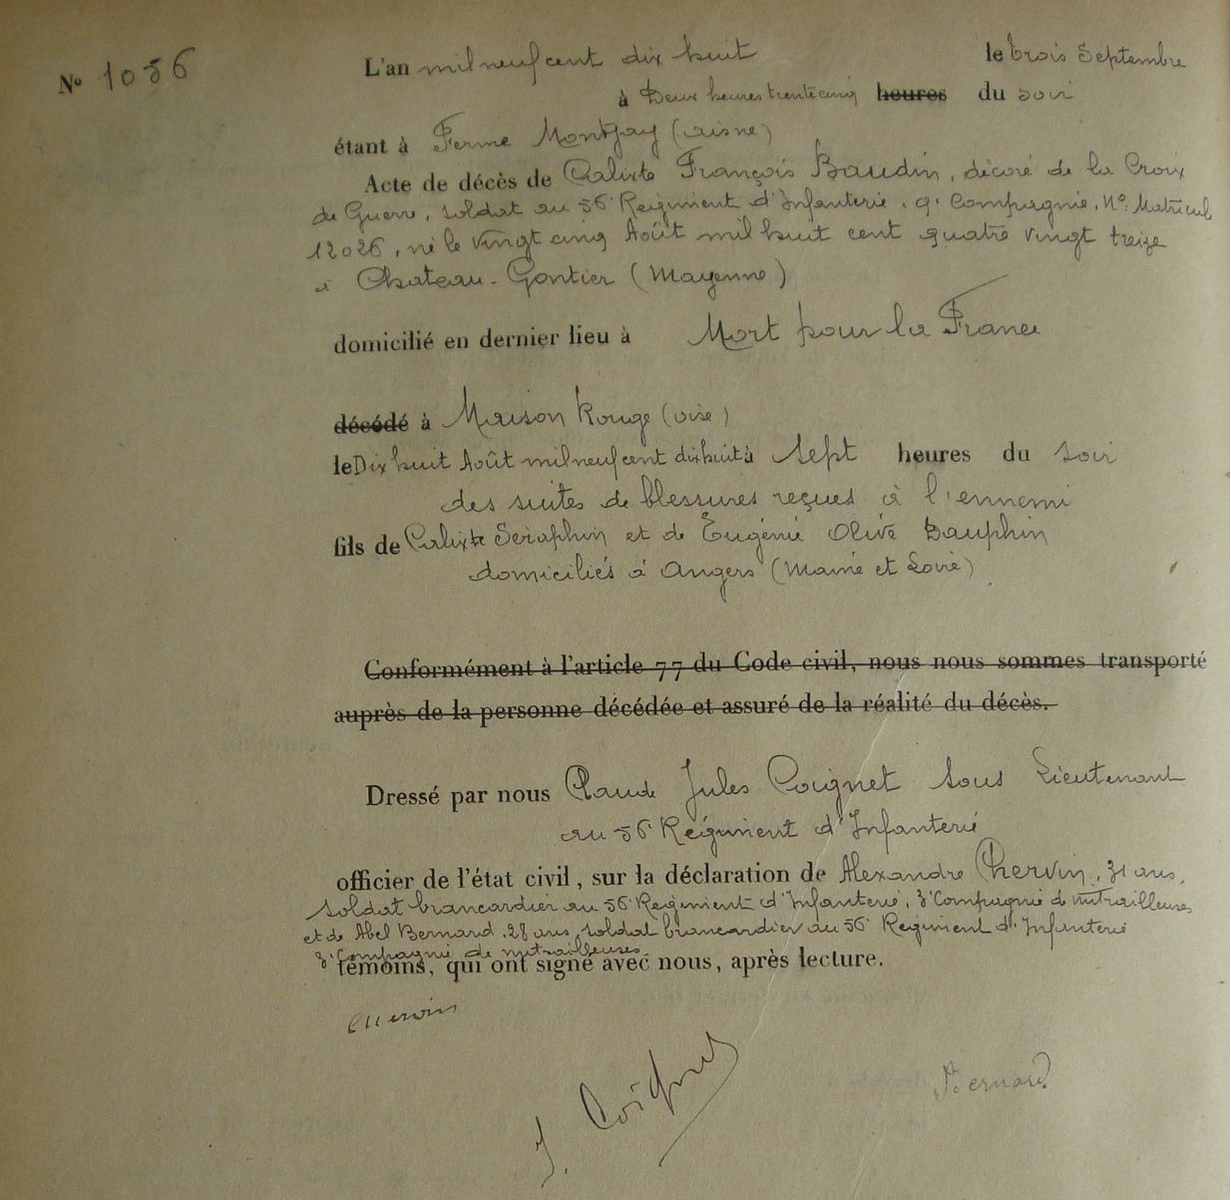 N° 1056
L'an mil neuf cent dix huit le trois Septembre
à Deux heures trente cinq heures du soir
étant à Ferme Montgay (aisne)
Acte de décès de Calixte François Baudin, décoré de la Croix
de Guerre, soldat au 56e Régiment d'Infanterie, 9e Compagnie, N° Matricul
12026, né le vingt cinq Août mil huit cent quatre vingt treize
à Chateau-Gontier (Mayenne)
domicilié en dernier lieu à Mort pour la France
décédé à Maison Rouge (oise)
le Dix huit Août mil neuf cent dix huit à sept heures du soir
des suites de blessures reçues à l'ennemi
fils de Calixte Séraphin et de Eugénie Olive Dauphin
domiciliés à Angers (Maine et Loire)
Conformément à l'article 77 du Code civil, nous nous sommes transporté
auprès de la personne décédée et assuré de la réalité du décès.
Dressé par nous Claude Jules Coignet Sous Lieutenant
au 56e Régiment d'Infanterie
officier de l'état civil, sur la déclaration de Alexandre Chervin, 31 ans,
soldat brancardier au 56e Régiment d'Infanterie, 3e Compagnie de mitrailleuses
et de Abel Bernard, 28 ans, soldat brancardier au 56e Régiment d'Infanterie
3e Compagnie de mitrailleuses
témoins, qui ont signé avec nous, après lecture.
Chervin
J. Coignet
Bernard